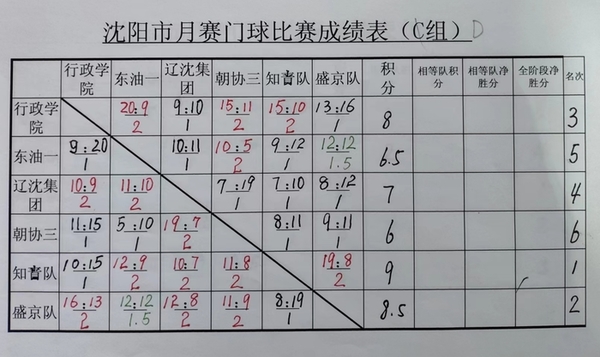 沈阳市月赛门球比赛成绩表（C组）D
行政学院 东油一 辽沈集团 朝协三 知青队 盛京队 积分 相等队积分 相等队净胜分 全阶段净胜分 名次
行政学院 20:9 9:10 15:11 15:10 13:16 8 3
2 1 2 2 1
东油一 9:20 10:11 10:5 9:12 12:12 6.5 5
1 1 2 1 1.5
辽沈集团 10:9 11:10 7:19 7:10 8:12 7 4
2 2 1 1 1
朝协三 11:15 5:10 19:7 8:11 9:11 6 6
1 1 2 1 1
知青队 10:15 12:9 10:7 11:8 19:8 9 1
1 2 2 2 2
盛京队 16:13 12:12 12:8 11:9 8:19 8.5 2
2 1.5 2 2 1